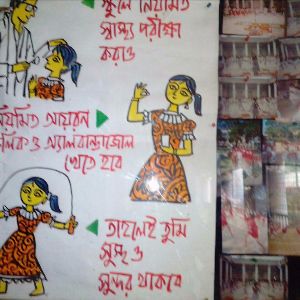 স্কুলে নিয়মিত
স্বাস্থ্য পরীক্ষা
করাও
নিয়মিত আয়রন
ফলিক ও অ্যালবান্ডাজোল
খেতে হবে
তাহলেই তুমি
সুস্থ ও
সুন্দর থাকবে